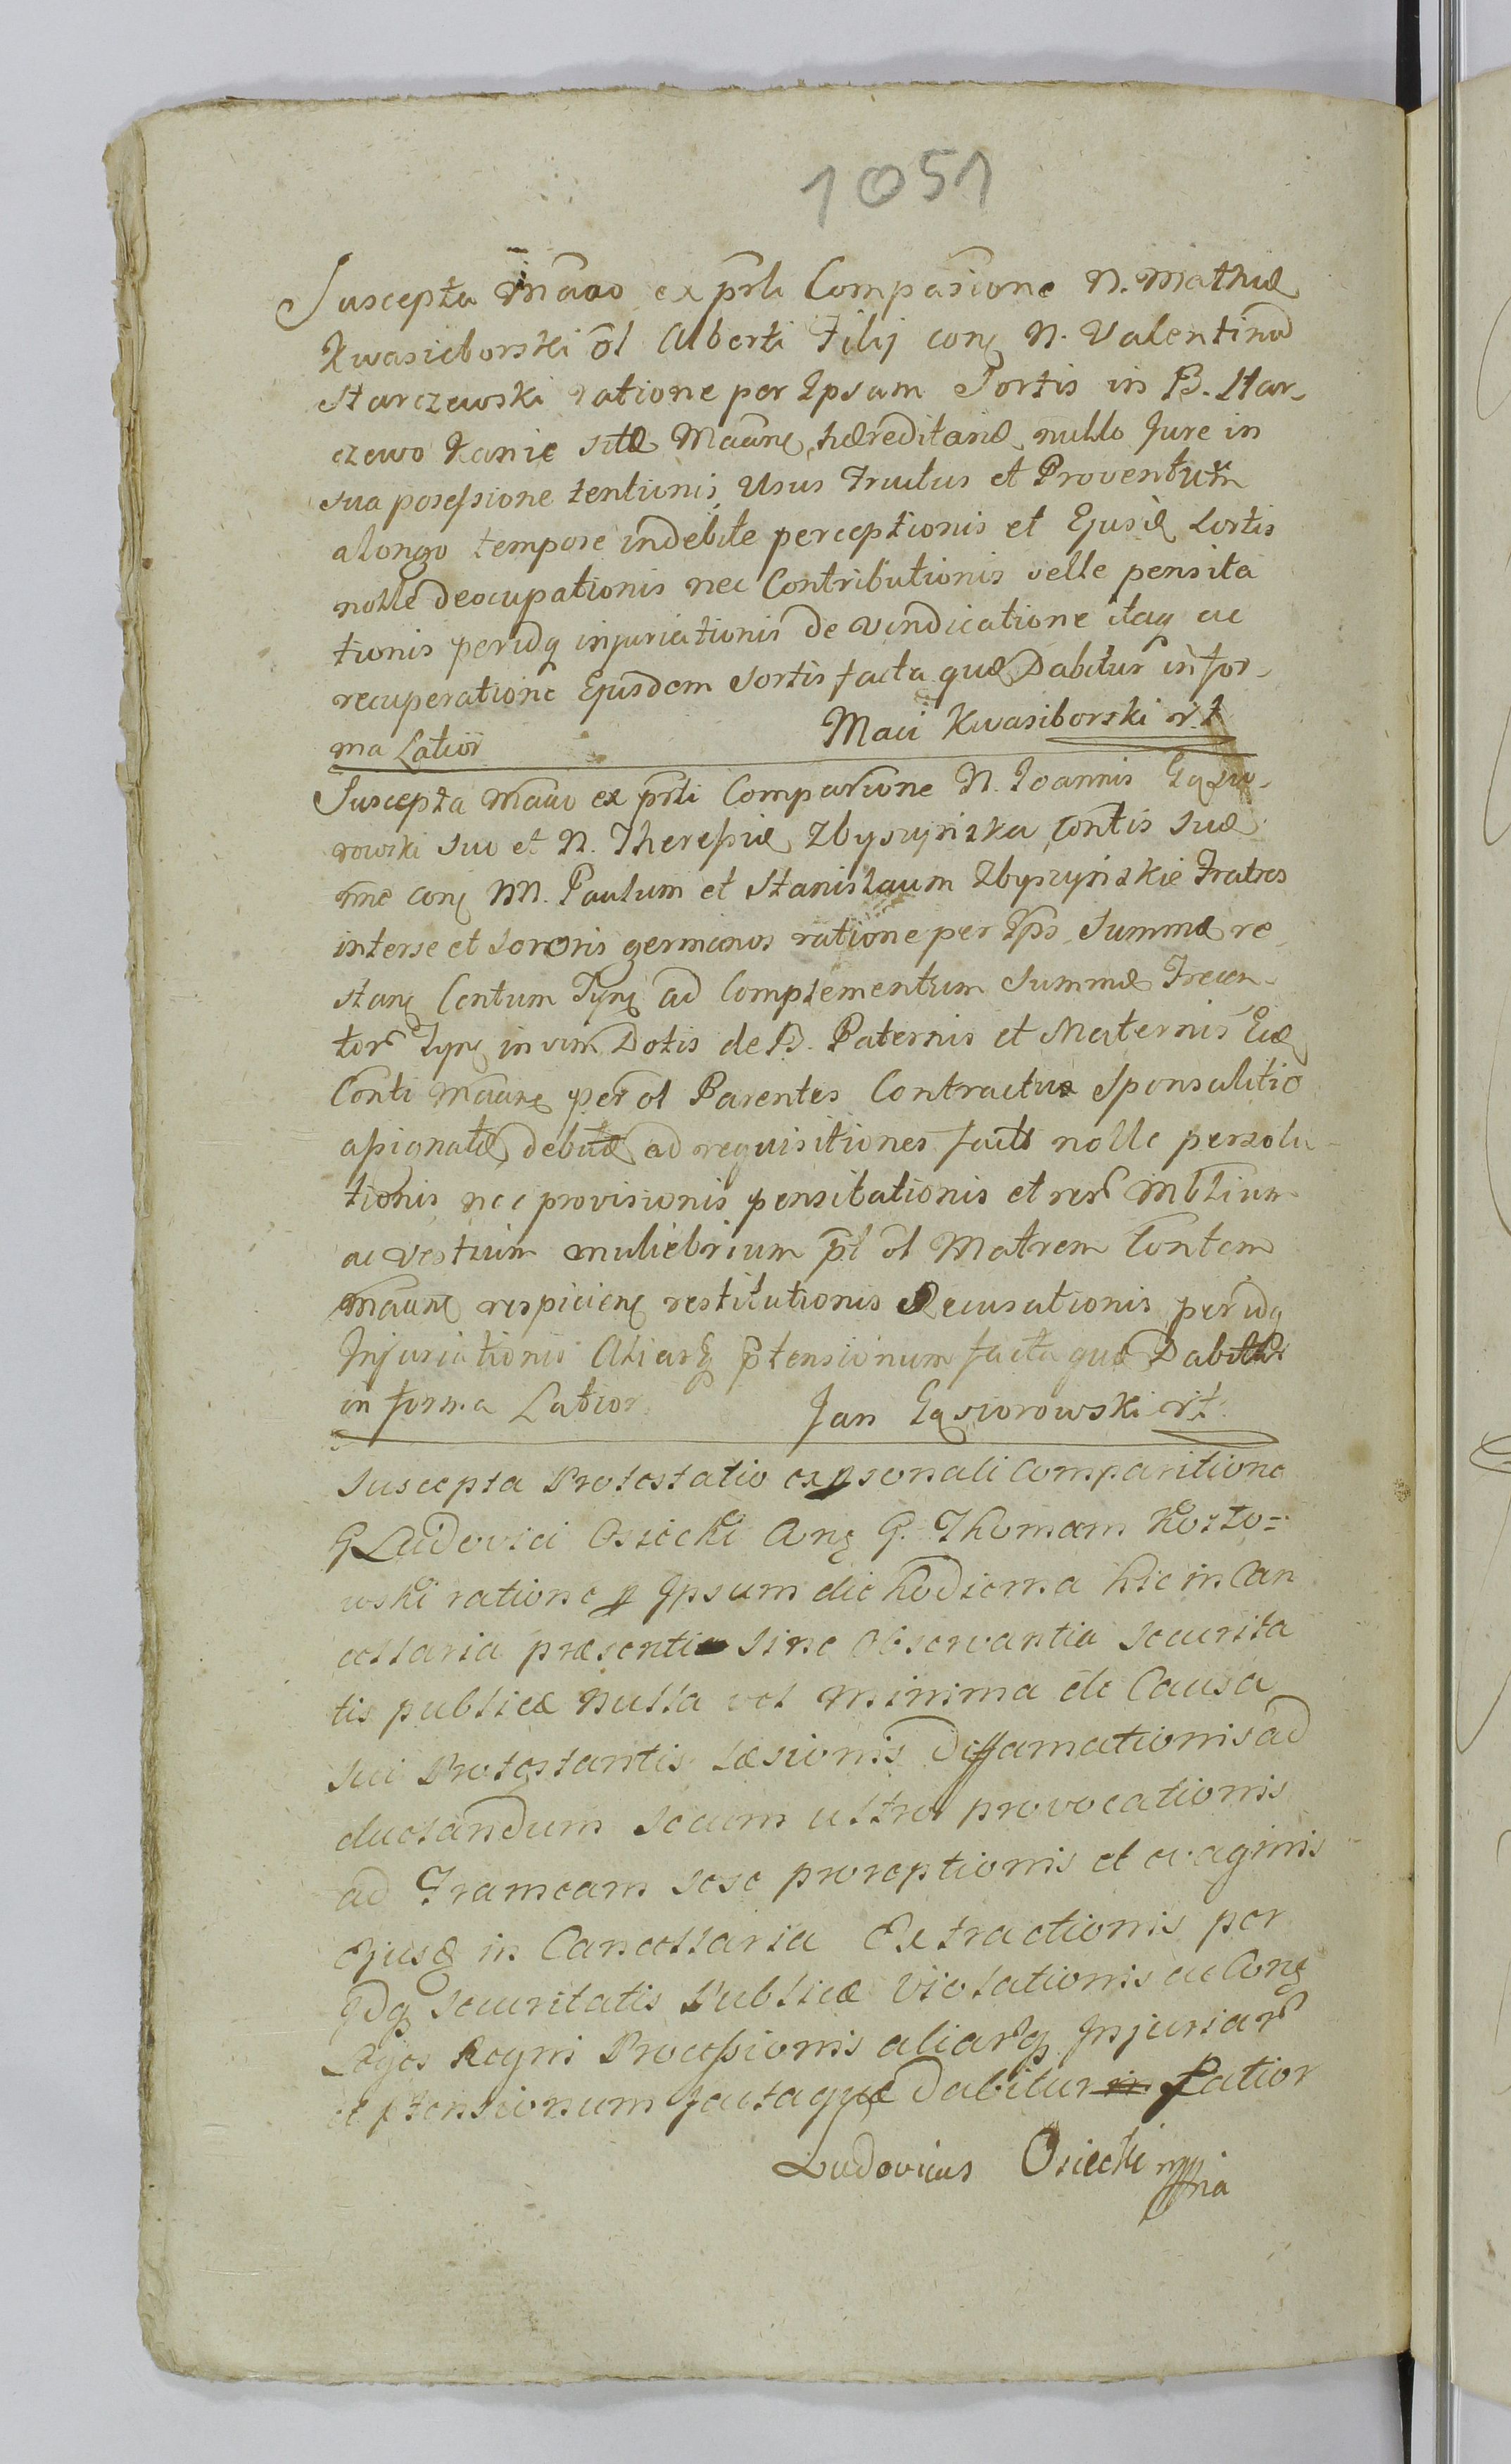 1051
Suscepta Mãaõ ex prli Compãrione N. Mathiæ
Kwasieborski õl Alberti Filij con N. Valentinũ
Starczewski ratione per Ipsum Sortis in B. Star-
czewo Kanie sitæ Mãan hæreditariæ nullo Jure in
sua possessione tentionis, Usus Fructus et Proventum
a longo tempore indebite perceptionis et Ejusd Sortis
nolle deocupationis nec Contributionis velle pensita
tionis peridq injuriationis de vendicatione itaq ac
recuperatione Ejusdem Sortis facta quæ Dabitur in for-
ma Latior Maci Kwasiborski rt
Suscepta Mãaõ ex prli Comparione N. Joannis Gąsio-
rowski suo et N. Theressiæ Zbyszyńska Contis suæ
nne con NN. Paulum et Stanislaum Zbyszyńskie Fratres
interse et Sororis germanos ratione per Ips Summæ re
stan Centum Tyn ad Complementum Summæ Trecen-
tor Tyn in vim Dotis de B. Paternis et Maternis Eid
Conti Mãan per ol Parentes Contractu Sponsalitio
assignatæ, debitæ ad requisitiones facts nolle persolu
tionis nec provisionis pensitationis et rer mblium
ac vestium muliebrium pt ol Matrem Contem
Mãan respicien restitutionis Recusationis per idq
Injuriationis Aliarq ptensionum facta quæ Dabitur
in forma Latior. Jan Gąsiorowski rt
Suscepta Protestatio ex psonali Comparitione
G Ludovici Osiecki Con G. Thomam Kosto=
wski ratione p Ipsum die hodierna hic in Can
cellaria præsenti sine Observantia Securita
tis publicæ nulla vel minima de Causa
sui Protestantis læsionis Diffamationis ad
duelandum secum ultro provocationis
ad Frameam sese proreptionis et evaginis
Ejusd in Cancellaria Extractionis per
Idq Securitatis Publicæ Violationis ac Con
Leges Regni Processionis aliarq Injuriar
et ptensionum facta quæ dabitur in Latior
Ludovicus Osiecki mppria